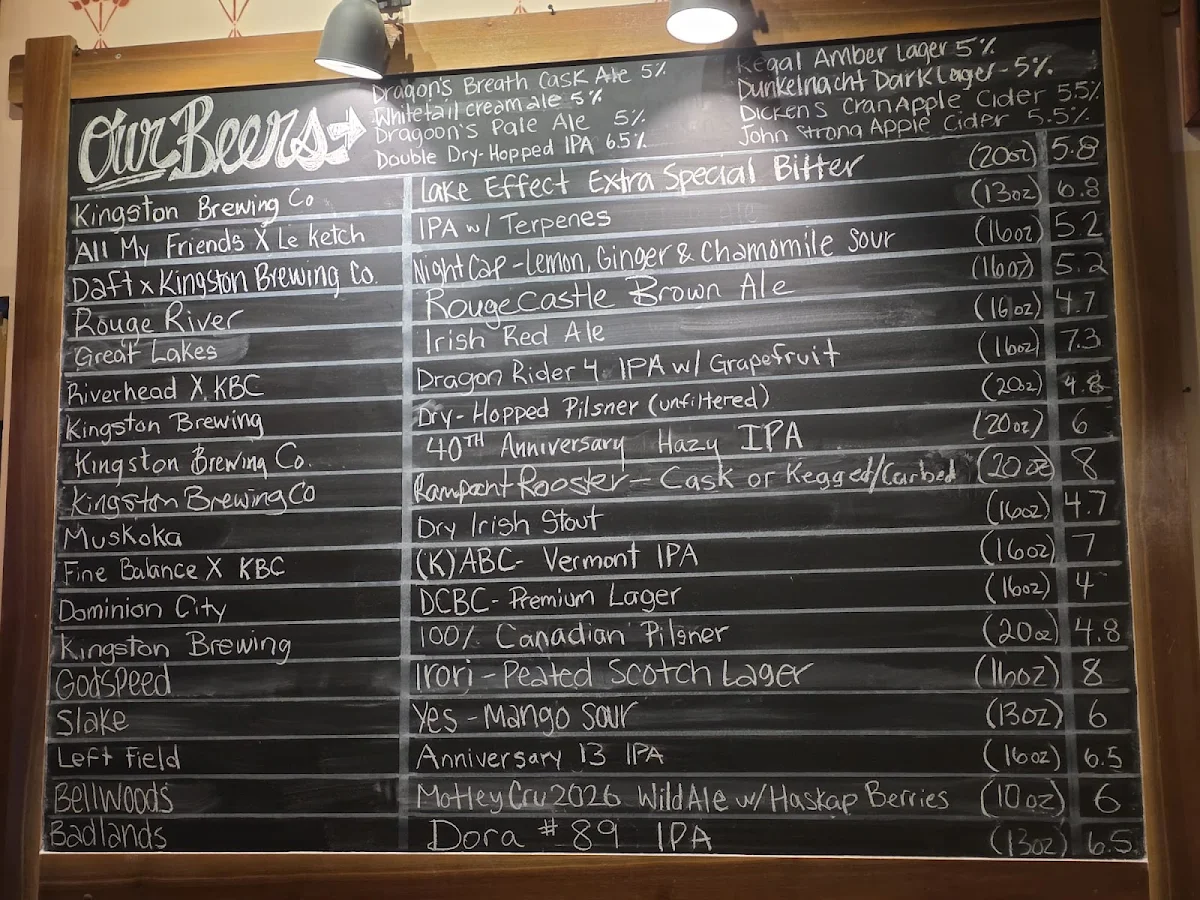 Our Beers
Dragon's Breath Cask Ale 5%
Whitetail cream ale 5%
Dragoon's Pale Ale 5%
Double Dry-Hopped IPA 6.5%
Regal Amber Lager 5%
Dunkelnacht Dark Lager - 5%
Dickens CranApple Cider 5.5%
John Strong Apple Cider 5.5%
Kingston Brewing Co Lake Effect Extra Special Bitter (20oz) 5.8
All My Friends X Le Ketch IPA w/ Terpenes (13oz) 6.8
Daft x Kingston Brewing Co. Night Cap - Lemon, Ginger & Chamomile Sour (16oz) 5.2
Rouge River Rouge Castle Brown Ale (16oz) 5.2
Great Lakes Irish Red Ale (16oz) 4.7
Riverhead X KBC Dragon Rider 4. IPA w/ Grapefruit (16oz) 7.3
Kingston Brewing Dry-Hopped Pilsner (unfiltered) (20oz) 4.8
Kingston Brewing Co. 40TH Anniversary Hazy IPA (20oz) 6
Kingston Brewing Co Rampant Rooster - Cask or Kegged/Carbed (20oz) 8
Muskoka Dry Irish Stout (16oz) 4.7
Fine Balance X KBC (K)ABC- Vermont IPA (16oz) 7
Dominion City DCBC- Premium Lager (16oz) 4
Kingston Brewing 100% Canadian Pilsner (20oz) 4.8
Godspeed Irori - Peated Scotch Lager (16oz) 8
Slake Yes - Mango Sour (13oz) 6
Left Field Anniversary 13 IPA (16oz) 6.5
Bellwoods Motley Cru 2026 Wild Ale w/ Haskap Berries (10oz) 6
Badlands Dora #89 IPA (13oz) 6.5